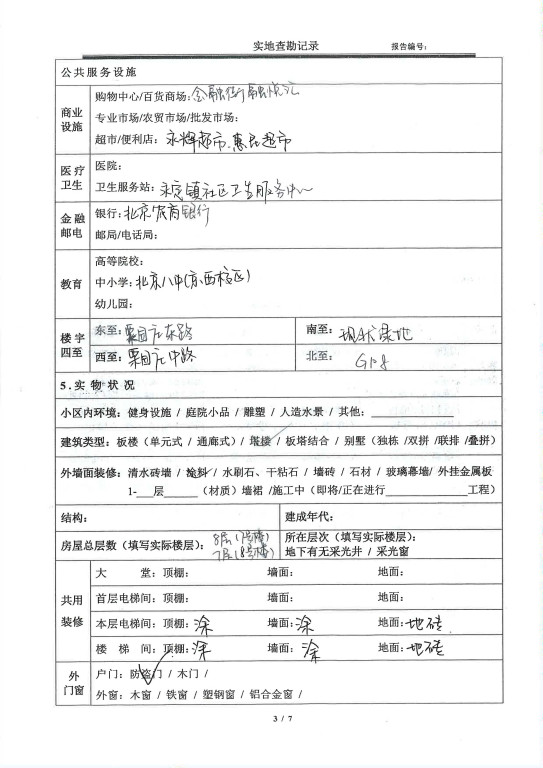 实地查勘记录 报告编号:
公共服务设施
商业设施
购物中心/百货商场:金融街融悦汇
专业市场/农贸市场/批发市场:
超市/便利店: 永辉超市、惠民超市
医疗卫生
医院:
卫生服务站: 永定镇社区卫生服务中心
金融邮电
银行: 北京农商银行
邮局/电话局:
教育
高等院校:
中小学: 北京八中(京西校区)
幼儿园:
楼宇四至
东至: 栗园庄东路 南至: 现状绿地
西至: 栗园庄中路 北至: G108
5.实物状况
小区内环境: 健身设施 / 庭院小品 / 雕塑 / 人造水景 / 其他:
建筑类型: 板楼（单元式 / 通廊式）/ 塔楼 / 板塔结合 / 别墅（独栋 /双拼 /联排 /叠拼）
外墙面装修: 清水砖墙 / 涂料 / 水刷石、干粘石 / 墙砖 / 石材 / 玻璃幕墙/ 外挂金属板
1-___层______（材质）墙裙 /施工中（即将/正在进行____________工程）
结构: 建成年代:
房屋总层数（填写实际楼层）: 8层(7号楼) 7层(8号楼)
所在层次（填写实际楼层）:
地下有无采光井 / 采光窗
共用装修
大 堂: 顶棚: 墙面: 地面:
首层电梯间: 顶棚: 墙面: 地面:
本层电梯间: 顶棚: 涂 墙面: 涂 地面: 地砖
楼 梯 间: 顶棚: 涂 墙面: 涂 地面: 地砖
外门窗
户门: 防盗门 / 木门 /
外窗: 木窗 / 铁窗 / 塑钢窗 / 铝合金窗 /
3 / 7